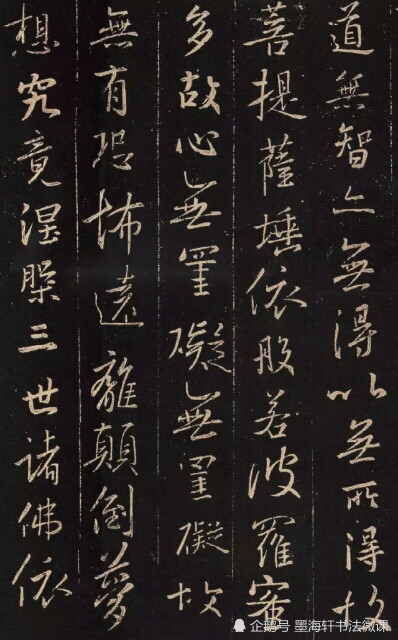 道無智亦無得以無所得故
菩提薩埵依般若波羅蜜
多故心無罣礙無罣礙故
無有恐怖遠離顛倒夢
想究竟涅槃三世諸佛依
企鹅号 墨海轩书法微课